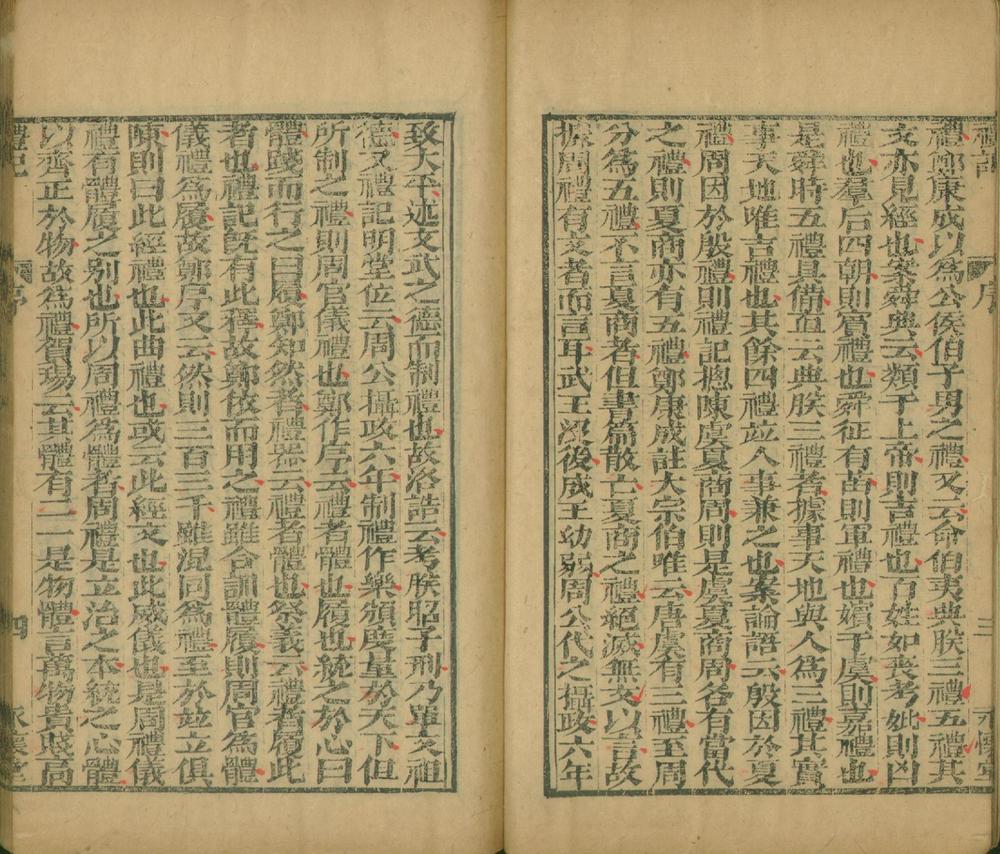 禮記
序
三
永懷堂
禮鄭康成以為公侯伯子男之禮又云命伯夷典朕三禮五禮其
文亦見經也案舜典云類于上帝則吉禮也百姓如喪考妣則凶
禮也羣后四朝則賓禮也舜征有苗則軍禮也嬪于虞則嘉禮也
是舜時五禮具備直云典朕三禮者據事天地與人為三禮其實
事天地唯吉禮也其餘四禮並人事兼之也案論語云殷因於夏
禮周因於殷禮則禮記揔陳虞夏商周則是虞夏商周各有當代
之禮則夏商亦有五禮鄭康成註大宗伯唯云唐虞有三禮至周
分為五禮不言夏商者但書篇散亡夏商之禮絕滅無文以言故
據周禮有文者而言耳武王沒後成王幼弱周公代之攝政六年
致大平述文武之德而制禮也故洛誥云考朕昭子刑乃單文祖
德又禮記明堂位云周公攝政六年制禮作樂頒度量於天下但
所制之禮則周官儀禮也鄭作序云禮者體也履也統之於心曰
體踐而行之曰履鄭知然者禮器云禮者體也祭義云禮者履此
者也禮記既有此釋故鄭依而用之禮雖合訓體履則周官為體
儀禮為履故鄭序又云然則三百三千雖混同為禮至於並立俱
陳則曰此經禮也此曲禮也或云此經文也此威儀也是周禮儀
禮有體履之別也所以周禮為體者周禮是立治之本統之心體
以齊正於物故為禮賀瑒云其體有二一是物體言萬物貴賤高
禮記
序
四
永懷堂